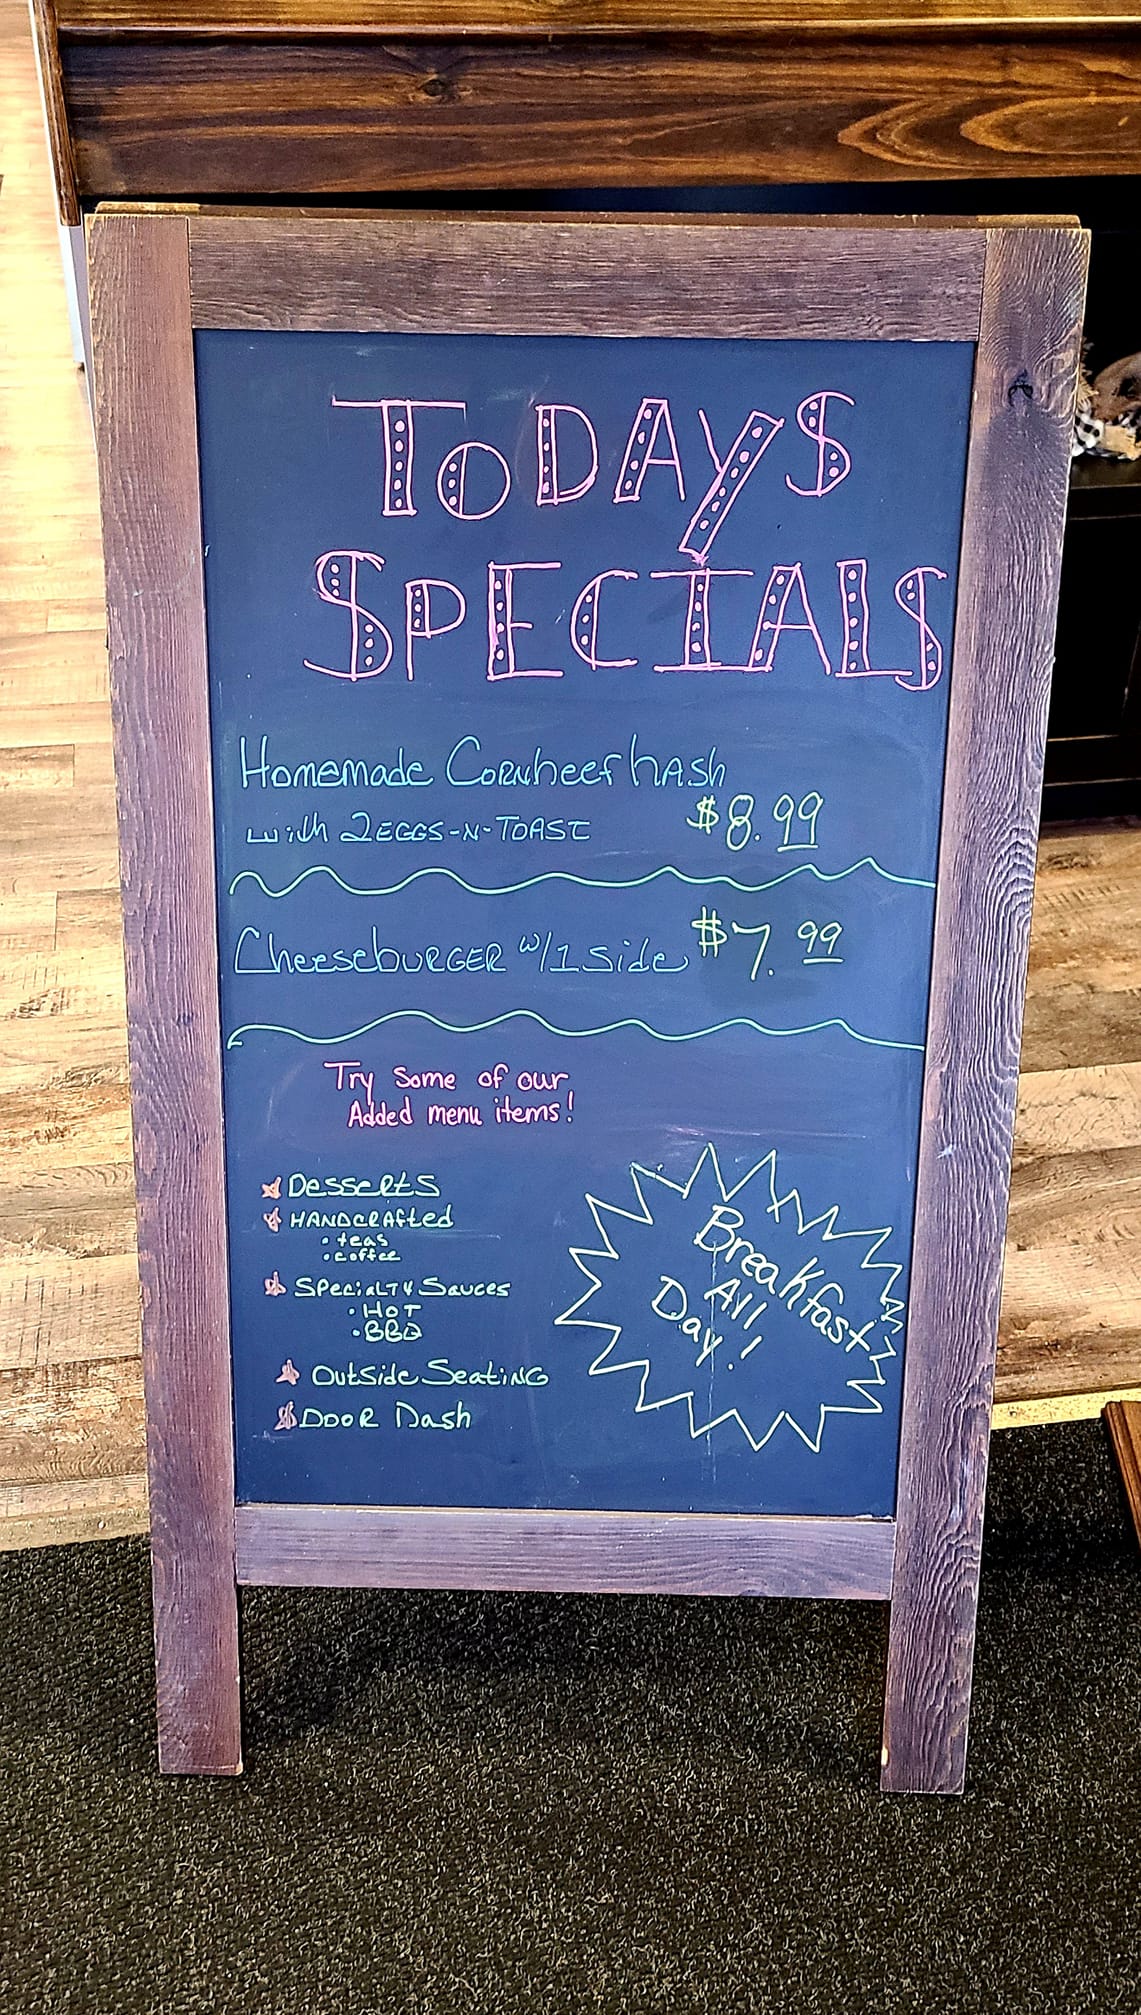 TODAYS
SPECIALS
Homemade Cornbeef hash
with 2 EGGS-N-TOAST $8.99
Cheeseburger w/1 side $7.99
Try Some of our
Added menu items!
Desserts
Handcrafted
• teas
• coffee
Specialty Sauces
• HOT
• BBQ
Outside Seating
Door Dash
Breakfast
All
Day!!